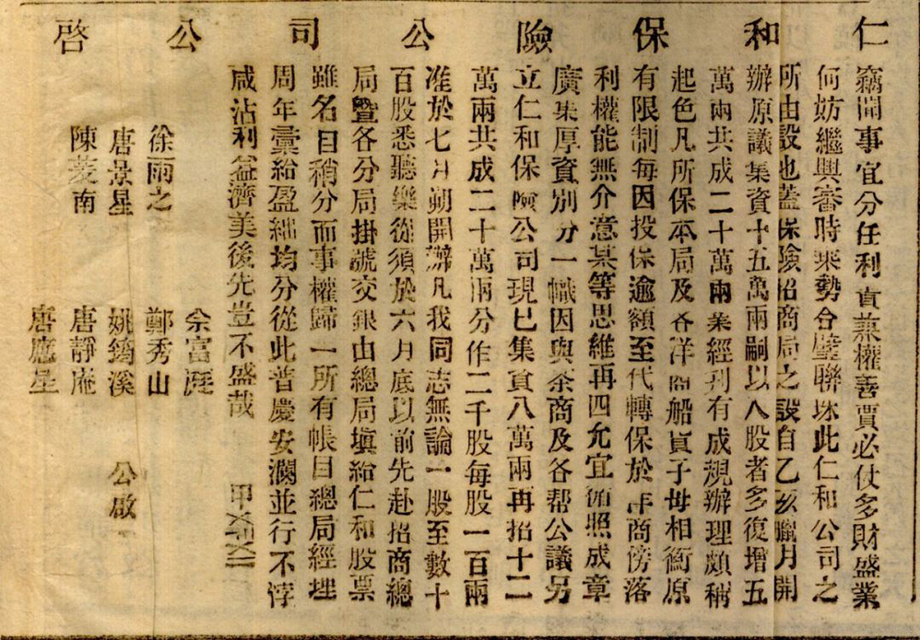 仁和保險公司公啓
竊聞事宜分任利貴兼權善賈必仗多財盛業
何妨繼興審時乘勢合璧聯珠此仁和公司之
所由設也蓋保險招商局之設自乙亥臘月開
辦原議集資十五萬兩嗣以入股者多復增五
萬兩共成二十萬兩業經刋有成規辦理頗稱
起色凡所保本局及各洋商船貨子母相衡原
有限制每因投保逾額至代轉保於洋商傍落
利權能無介意某等思維再四允宜循照成章
廣集厚資別分一幟因與茶商及各帮公議另
立仁和保險公司現已集貲八萬兩再招十二
萬兩共成二十萬兩分作二千股每股一百兩
准於七月朔開辦凡我同志無論一股至數十
百股悉聽樂從須於六月底以前先赴招商總
局暨各分局掛號交銀由總局塡給仁和股票
雖名目稍分而事權歸一所有帳目總局經理
周年彙給盈絀均分從此普慶安瀾並行不悖
咸沾利益濟美後先豈不盛哉
余富庭
徐雨之 鄭秀山
唐景星 姚溪 公啟
陳菱南 唐靜庵
唐應星